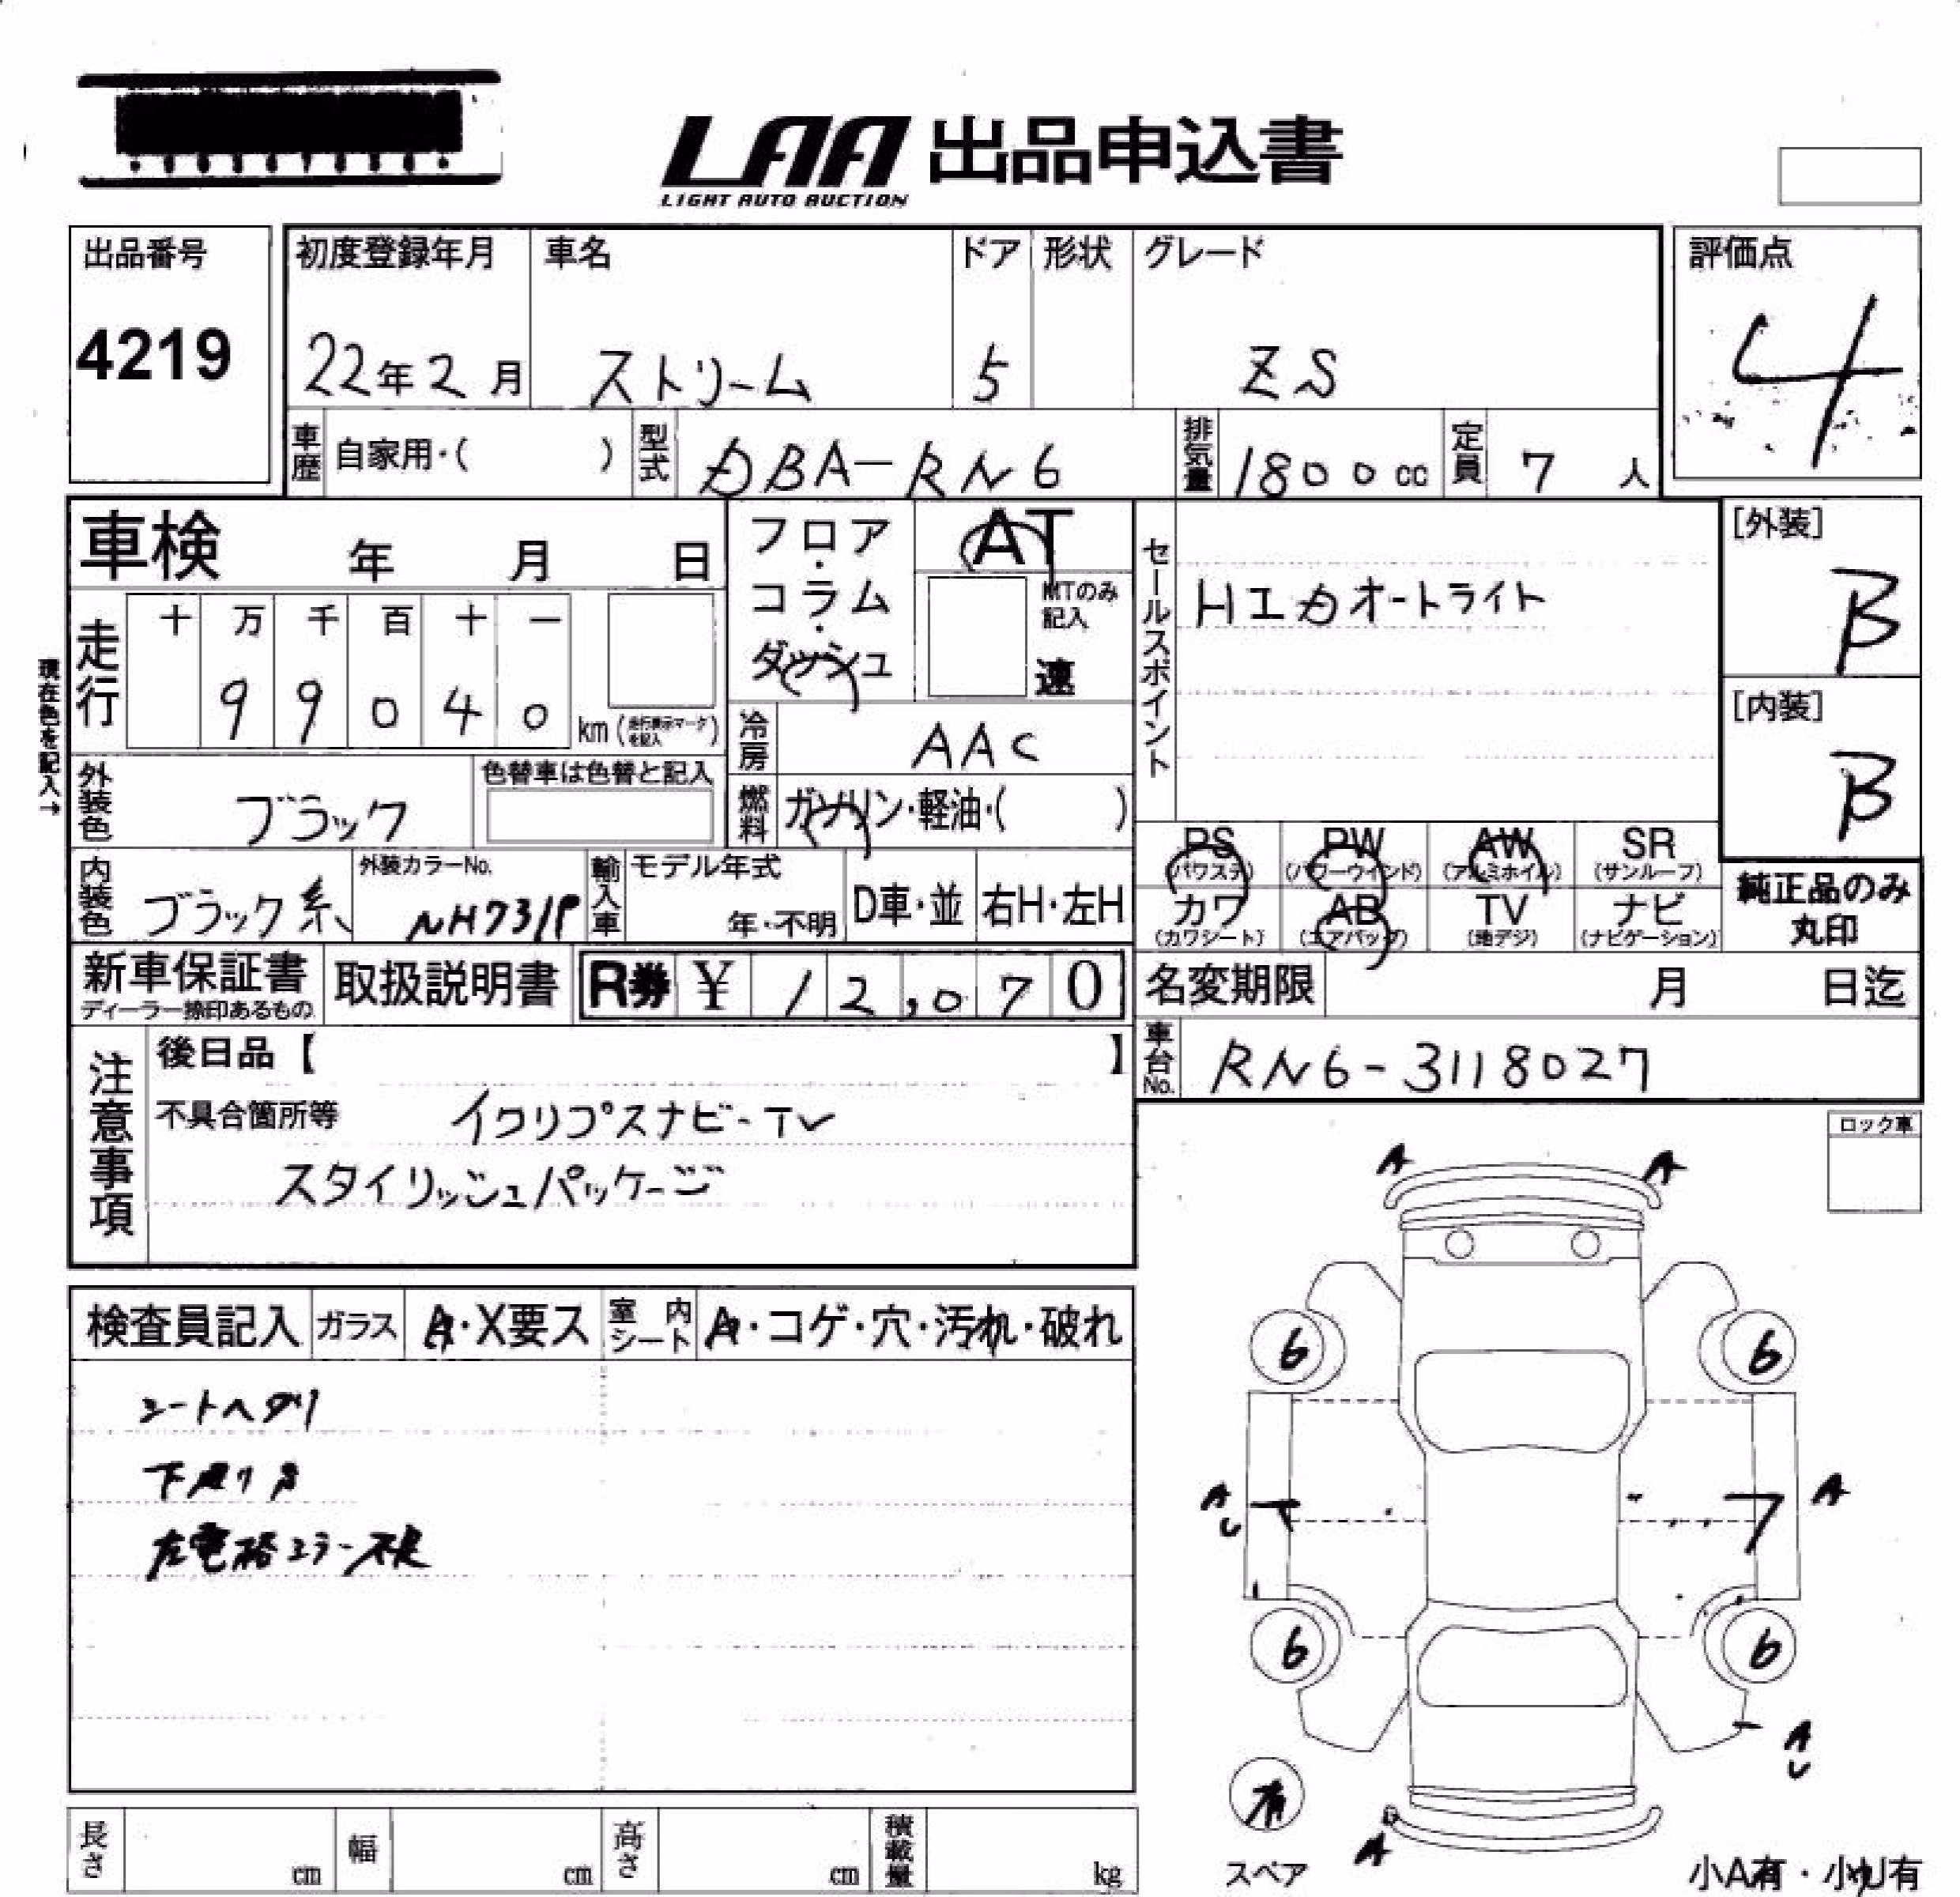 LAA 出品申込書
LIGHT AUTO AUCTION
出品番号
4219
初度登録年月 車名 ドア 形状 グレード
22年2月 ストリーム 5 ZS
評価点
4
車歴 自家用・( ) 型式 DBA-RN6 排気量 1800cc 定員 7人
車検 年 月 日
フロア・コラム・ダッシュ
AT
MTのみ記入
速
セールスポイント
HIDオートライト
[外装]
B
[内装]
B
現在色を記入→
走行 十 万 千 百 十 一
9 9 0 4 0 km (走行表示マークを記入)
冷房 AAC
外装色 ブラック
色替車は色替と記入
燃料 ガソリン・軽油・( )
PS (パワステ) PW (パワーウィンド) AW (アルミホイル) SR (サンルーフ)
カワ (カワシート) AB (エアバッグ) TV (地デジ) ナビ (ナビゲーション)
純正品のみ丸印
内装色 ブラック系
外装カラーNo. NH731P
輸入車 モデル年式 年・不明 D車・並 右H・左H
新車保証書
ディーラー捺印あるもの
取扱説明書
R券 ¥ 12,070
名変期限 月 日迄
車台No. RN6-3118027
注意事項
後日品【 】
不具合箇所等 イクリプスナビ-TV
スタイリッシュパッケージ
ロック車
検査員記入 ガラス A・X要ス 室内シート A・コゲ・穴・汚れ・破れ
シートヘタリ
左電格ミラー不良
A A
6 6
A A
U
6 6
A
U
有
スペア
A
小A有・小U有
長さ cm 幅 cm 高さ cm 積載量 kg